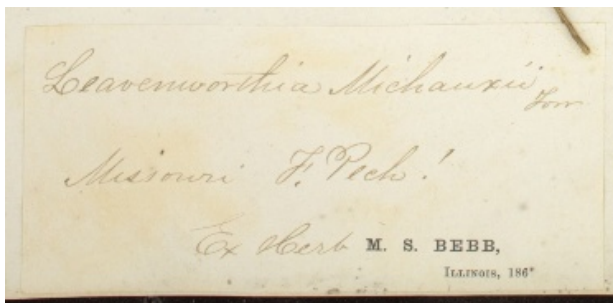 Leavenworthia Michauxii Torr
Missouri F. Pech!
Ex Herb M. S. BEBB,
ILLINOIS, 186*